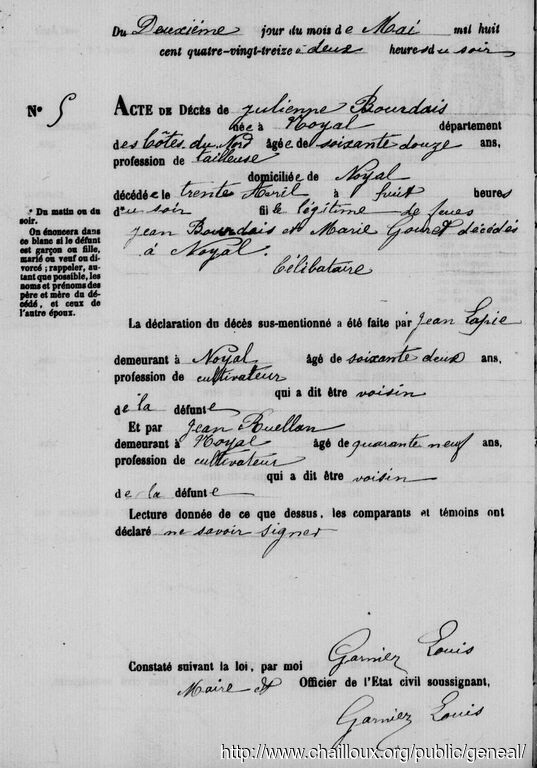 Du Deuxième jour du mois de Mai mil huit
cent quatre-vingt-treize à deux heures du soir
N° 5
ACTE DE DÉCÈS de Julienne Bourdais
née à Noyal département
des Côtes du Nord âgée de soixante douze ans,
profession de tailleuse
domiciliée de Noyal
décédée le trente Avril à huit heures
du soir fille légitime de feues
Jean Bourdais et Marie Gouret décédés
à Noyal.
Célibataire
* Du matin ou du
soir.
On énoncera dans
ce blanc si le défunt
est garçon ou fille,
marié ou veuf ou di-
vorcé ; rappeler, au-
tant que possible, les
noms et prénoms des
père et mère du dé-
cédé, et ceux de
l'autre époux.
La déclaration du décès sus-mentionné a été faite par Jean Lapie
demeurant à Noyal âgé de soixante deux ans,
profession de cultivateur
qui a dit être voisin
de la défunte
Et par Jean Ruellan
demeurant à Noyal âgé de quarante neuf ans,
profession de cultivateur
qui a dit être voisin
de la défunte
Lecture donnée de ce que dessus, les comparants et témoins ont
déclaré ne savoir signer
Constaté suivant la loi, par moi Garnier Louis
Maire et Officier de l'Etat civil soussignant,
Garnier Louis
http://www.chailloux.org/public/geneal/